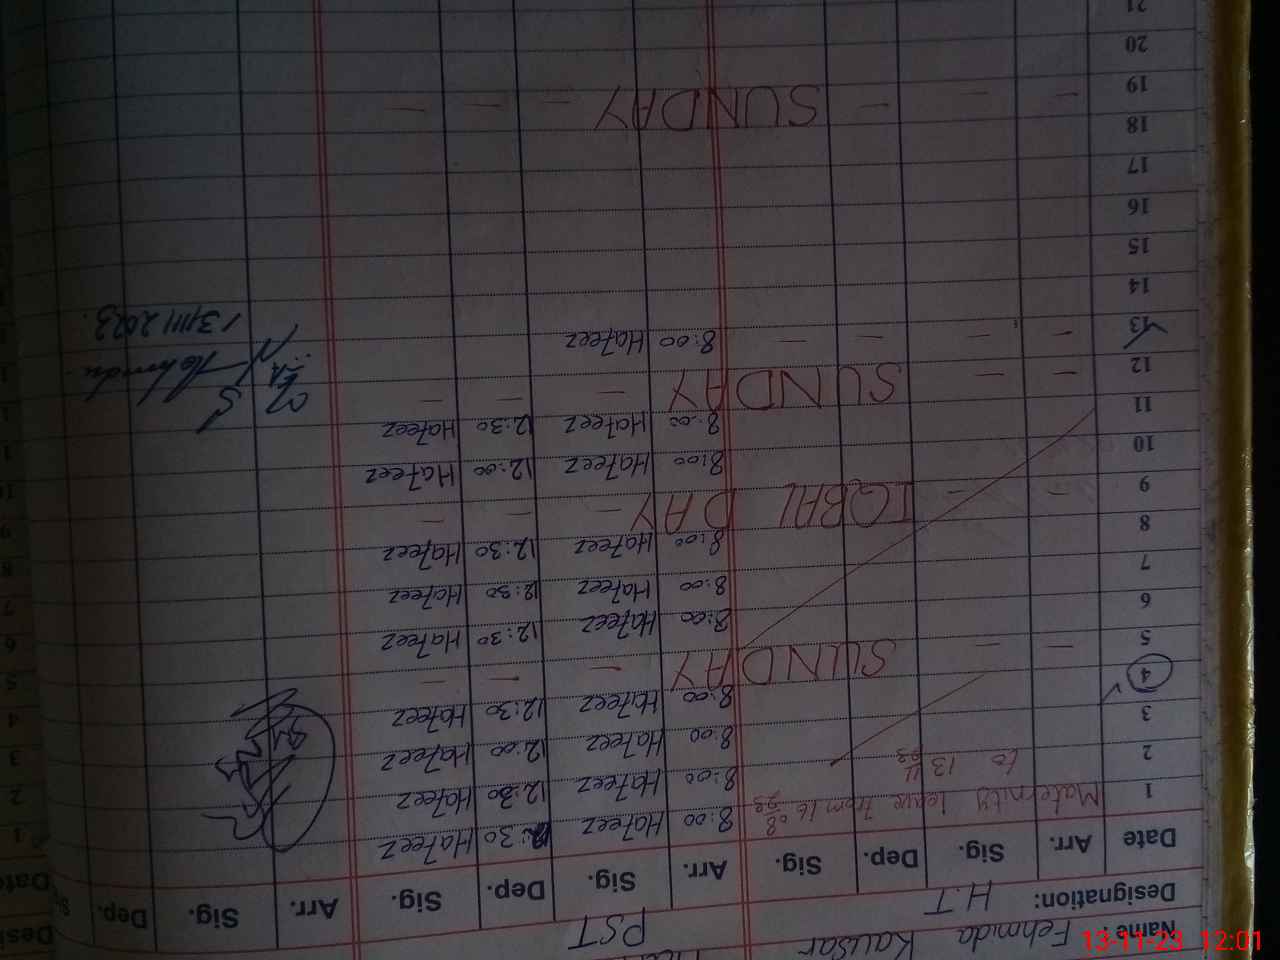 Name: Fehmida Kausar
Designation: H.T PST
Date Arr. Sig. Dep. Sig. Arr. Sig. Dep. Sig. Arr. Sig. Dep.
1 Maternity leave from 16 08 23 8:00 Hafeez 12:30 Hafeez
2 to 13 11 23 8:00 Hafeez 12:30 Hafeez
3 8:00 Hafeez 12:00 Hafeez
4 8:00 Hafeez 12:30 Hafeez
5 — — SUNDAY — — —
6 8:00 Hafeez 12:30 Hafeez
7 8:00 Hafeez 12:30 Hafeez
8 8:00 Hafeez 12:30 Hafeez
9 — — IQBAL DAY — — —
10 8:00 Hafeez 12:00 Hafeez
11 8:00 Hafeez 12:30 Hafeez
12 — — SUNDAY — — —
13 — — — — 8:00 Hafeez
13/11/2023
14
15
16
17
18
19 — — — SUNDAY — — —
20
21
13-11-23 12:01